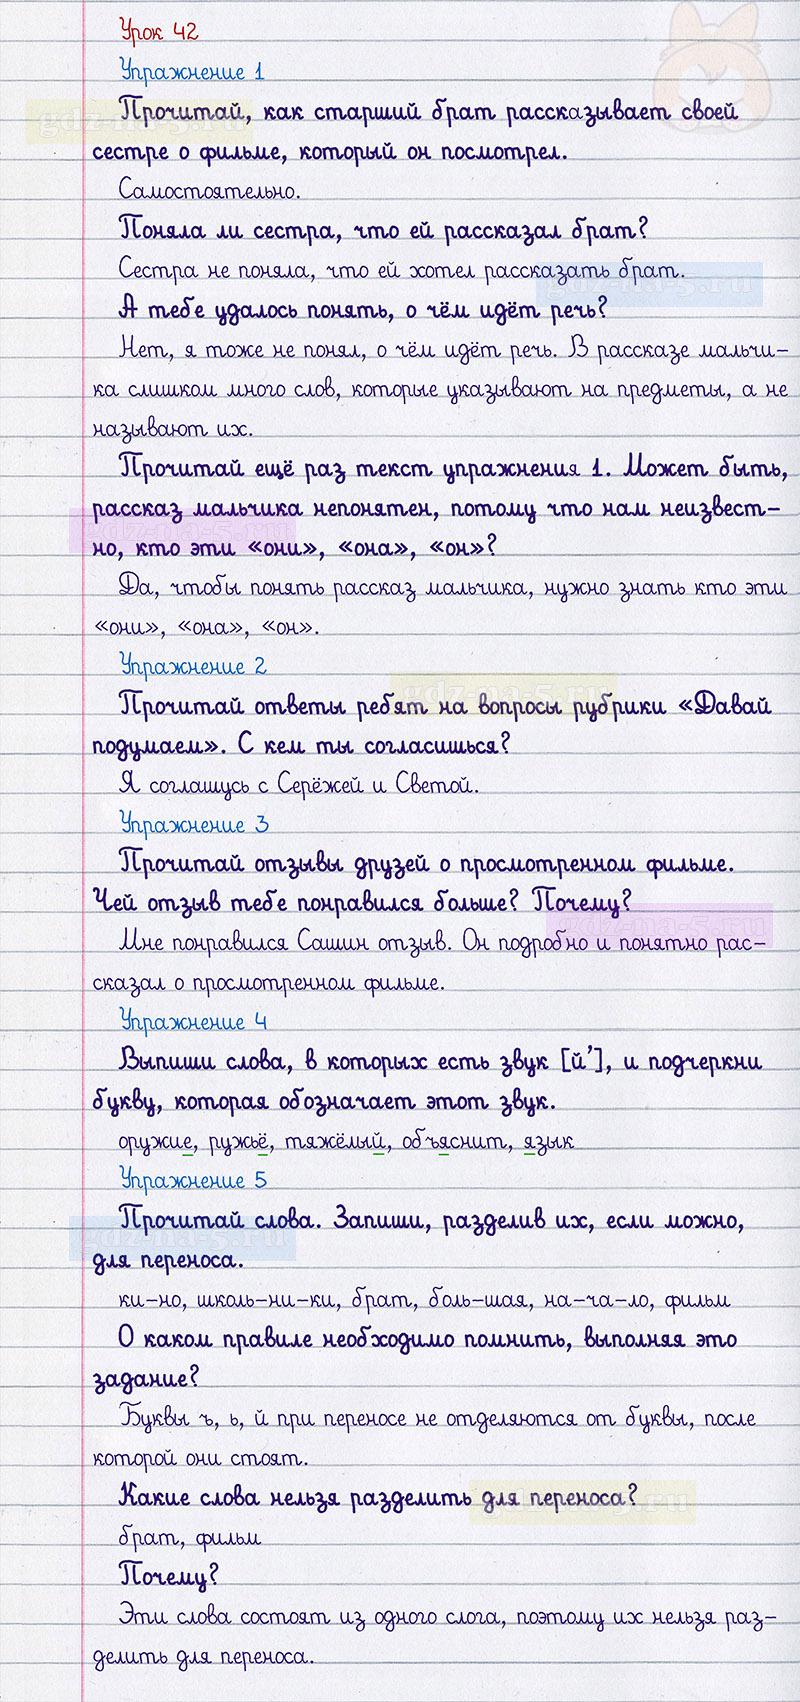 Урок 42
Упражнение 1
Прочитай, как старший брат рассказывает своей
сестре о фильме, который он посмотрел.
Самостоятельно.
Поняла ли сестра, что ей рассказал брат?
Сестра не поняла, что ей хотел рассказать брат.
А тебе удалось понять, о чём идёт речь?
Нет, я тоже не понял, о чём идёт речь. В рассказе мальчи-
ка слишком много слов, которые указывают на предметы, а не
называют их.
Прочитай ещё раз текст упражнения 1. Может быть,
рассказ мальчика непонятен, потому что нам неизвест-
но, кто эти «они», «она», «он»?
Да, чтобы понять рассказ мальчика, нужно знать кто эти
«они», «она», «он».
Упражнение 2
Прочитай ответы ребят на вопросы рубрики «Давай
подумаем». С кем ты согласишься?
Я соглашусь с Серёжей и Светой.
Упражнение 3
Прочитай отзывы друзей о просмотренном фильме.
Чей отзыв тебе понравился больше? Почему?
Мне понравился Сашин отзыв. Он подробно и понятно рас-
сказал о просмотренном фильме.
Упражнение 4
Выпиши слова, в которых есть звук [й’], и подчеркни
букву, которая обозначает этот звук.
оружие, ружьё, тяжёлый, объяснит, язык
Упражнение 5
Прочитай слова. Запиши, разделив их, если можно,
для переноса.
ки-но, школь-ни-ки, брат, боль-шая, на-ча-ло, фильм
О каком правиле необходимо помнить, выполняя это
задание?
Буквы ъ, ь, й при переносе не отделяются от буквы, после
которой они стоят.
Какие слова нельзя разделить для переноса?
брат, фильм
Почему?
Эти слова состоят из одного слога, поэтому их нельзя раз-
делить для переноса.
gdz-na-5.ru
gdz-na-5.ru
gdz-na-5.ru
gdz-na-5.ru
gdz-na-5.ru
gdz-na-5.ru
gdz-na-5.ru